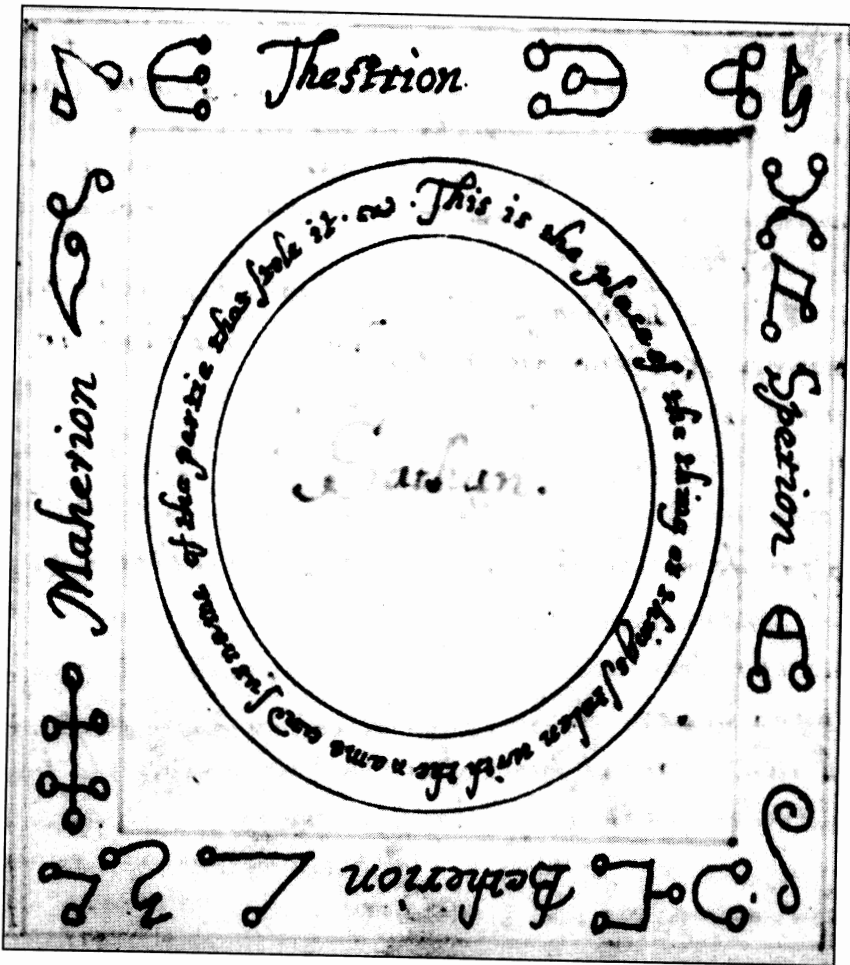 Thestrion
Sperion
Betherion
Maherion
This is the place of the thing or things stolen with the name and surname of the partie that stole it.